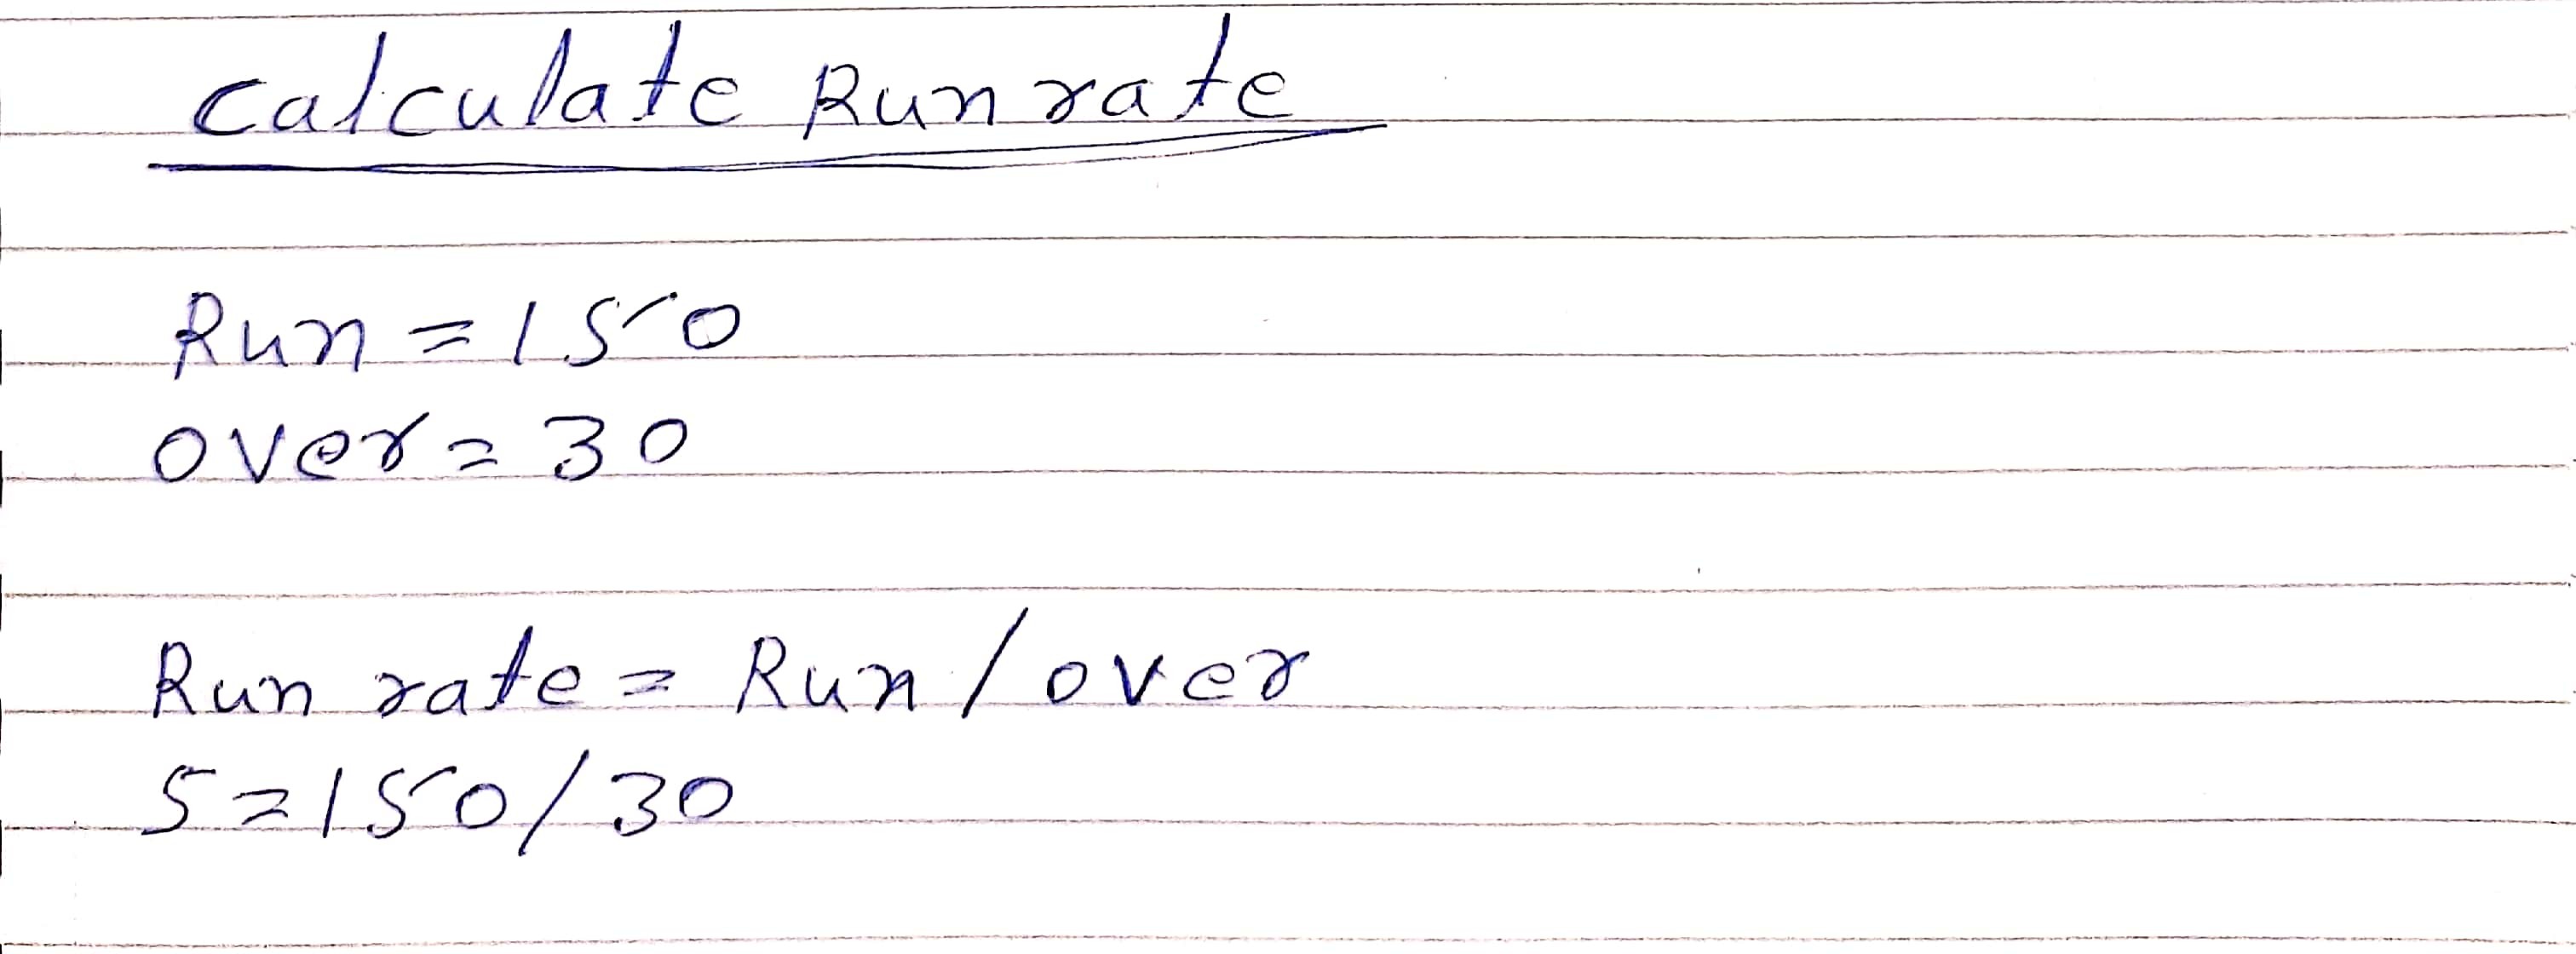 calculate Run rate
Run = 150
over = 30
Run rate = Run / over
5 = 150 / 30